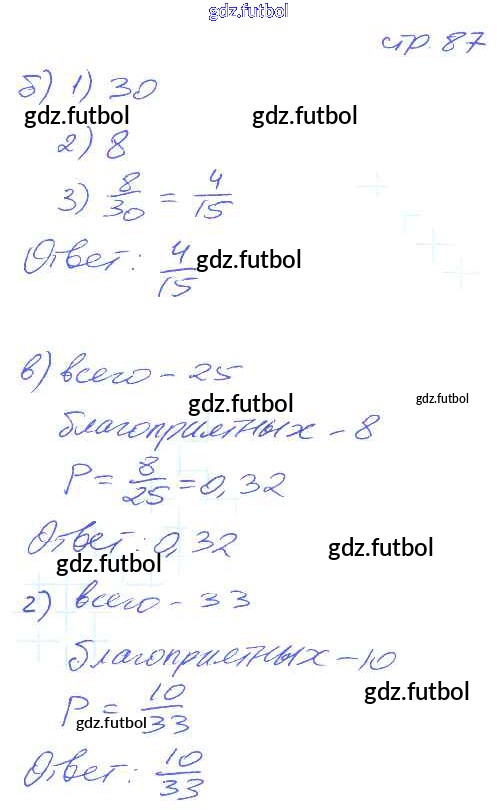 gdz.futbol
стр. 87
б) 1) 30
gdz.futbol gdz.futbol
2) 8
3) 8/30 = 4/15
Ответ: 4/15 gdz.futbol
в) всего - 25
gdz.futbol gdz.futbol
благоприятных - 8
P = 8/25 = 0,32
Ответ: 0,32 gdz.futbol
gdz.futbol
г) всего - 33
благоприятных - 10
gdz.futbol
P = 10/33
gdz.futbol
Ответ: 10/33